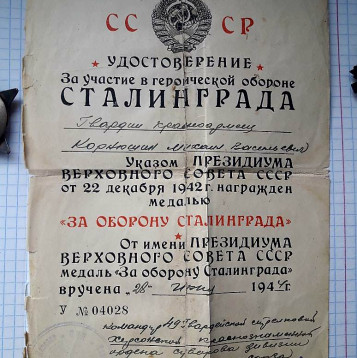 СС СР
УДОСТОВЕРЕНИЕ
За участие в героической обороне
СТАЛИНГРАДА
Гвардии красноармеец
Михаил Васильевич
Указом ПРЕЗИДИУМА
ВЕРХОВНОГО СОВЕТА СССР
от 22 декабря 1942 г. награжден
медалью
«ЗА ОБОРОНУ СТАЛИНГРАДА»
От имени ПРЕЗИДИУМА
ВЕРХОВНОГО СОВЕТА СССР
медаль «За оборону Сталинграда»
вручена „28“ 1944 г.
У № 04028
Командир 49 Гвардейской стрелковой
Херсонской краснознаменной
ордена суворова дивизии